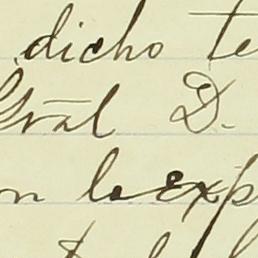 dicho te
Gral D.
n lo exp